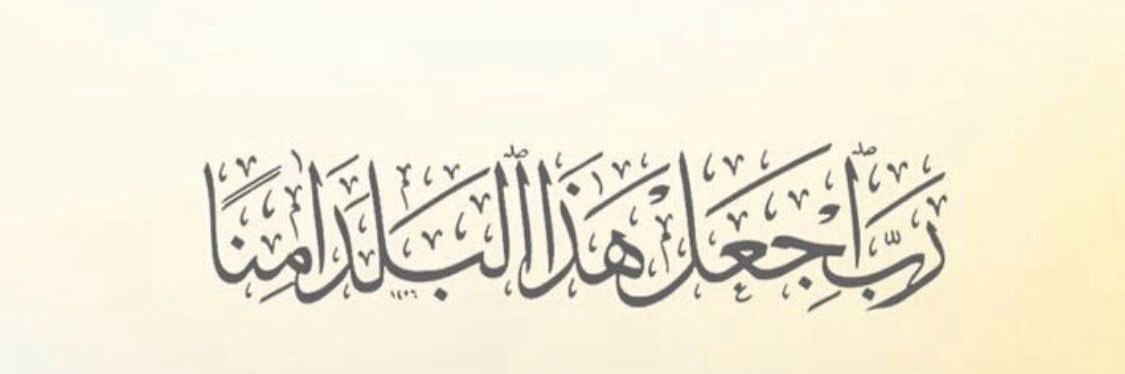 رَبِّ ٱجْعَلْ هَذَا ٱلبَلَدَ اٰمِنًا